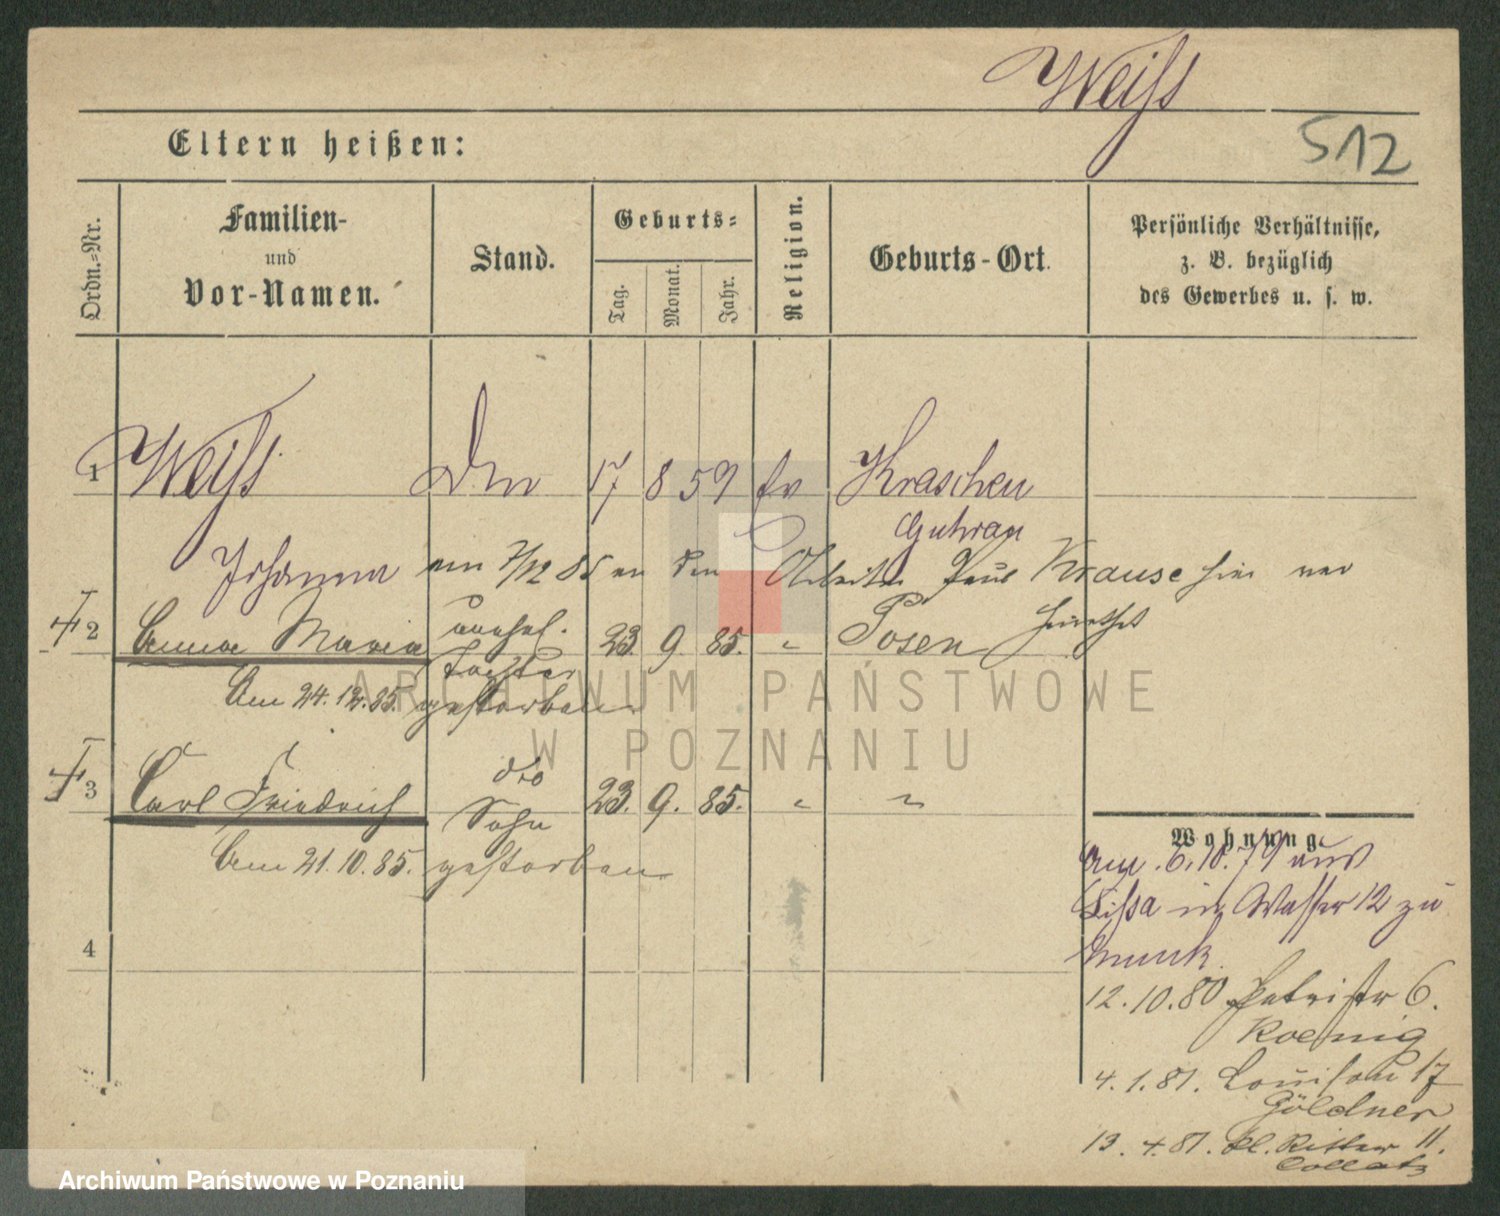 Weiß
Eltern heißen:
512
Ordn.=Nr.
Familien-
und
Vor-Namen.
Stand.
Geburts=
Tag.
Monat.
Jahr.
Religion.
Geburts-Ort.
Persönliche Verhältnisse,
z. B. bezüglich
des Gewerbes u. s. w.
1 Weiß 17 8 59 ev Kraschen
Guhrau
Johanna am 7/12 85 an den Arbeiter Paul Krause hier ver
heirathet
2 Anna Maria unehel. 23 9 85. " Posen
Tochter
Am 24.12.85. gestorben
3 Carl Friedrich dto 23. 9. 85. " "
Sohn
Am 21.10.85. gestorben
4
Wohnung
6.10.79 aus
Lissa in Wasser 12 zu
Munk.
12.10.80 Petristr 6.
Koenig
4.1.81. Louisen 17
Göldner
13.4.81. kl. Ritter 11.
Collatz
ARCHIWUM PAŃSTWOWE
W POZNANIU
Archiwum Państwowe w Poznaniu